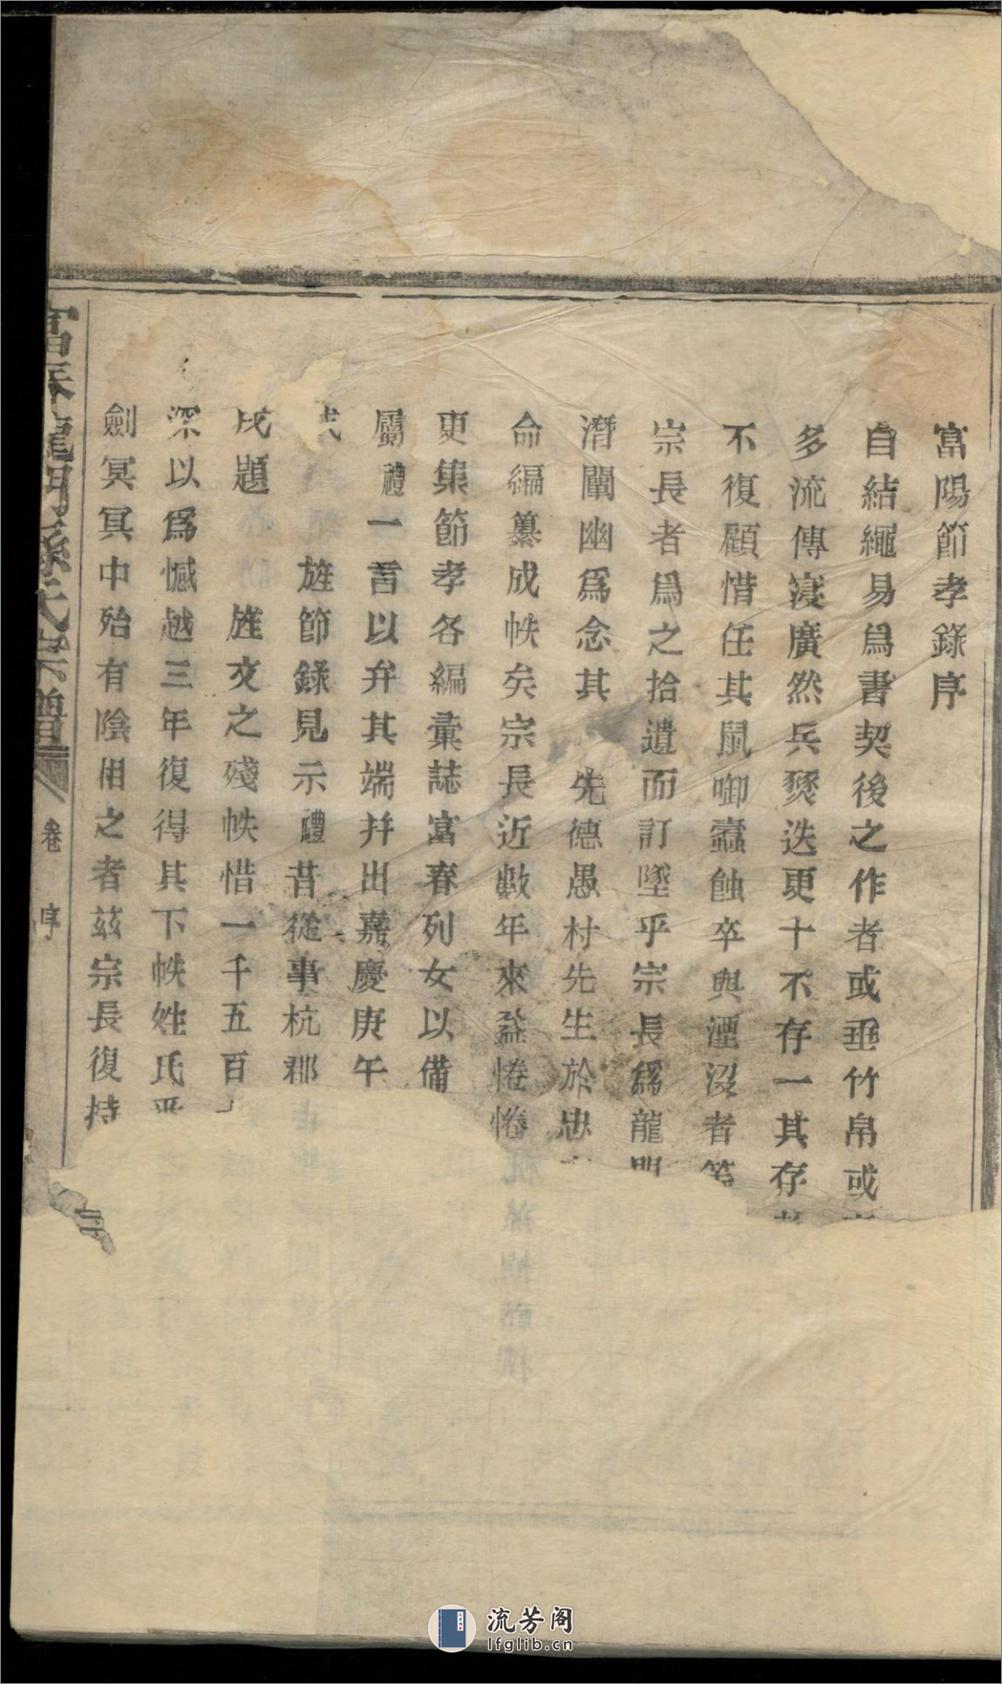 富陽節孝錄序
自結繩易爲書契後之作者或垂竹帛或
多流傳寖廣然兵燹迭更十不存一其存
不復顧惜任其鼠啣蠹蝕卒與湮沒者等
宗長者爲之拾遺而訂墜乎宗長爲龍門
潛闡幽爲念其　先德愚村先生於忠
命編纂成帙矣宗長近數年來益惓惓
更集節孝各編彙誌富春列女以備
屬禮一言以弁其端幷出嘉慶庚午
旌節錄見示禮昔從事杭郡
戌題　旌文之殘帙惜一千五百
深以爲憾越三年復得其下帙姓氏
劍冥冥中殆有陰相之者茲宗長復持
富春龍門孫氏宗譜　卷　序
流芳阁
lfglib.cn